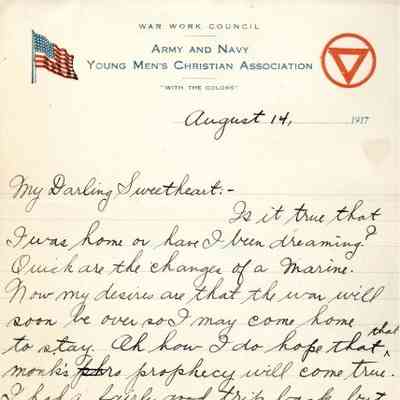 WAR WORK COUNCIL
ARMY AND NAVY
YOUNG MEN'S CHRISTIAN ASSOCIATION
"WITH THE COLORS"
August 14, 1917
My Darling Sweetheart:-
Is it true that
I was home or have I been dreaming?
Quick are the changes of a Marine.
Now my desires are that the war will
soon be over so I may come home
to stay. Ah how I do hope that that
monk's pro prophecy will come true.
I had a fairly good trip back but